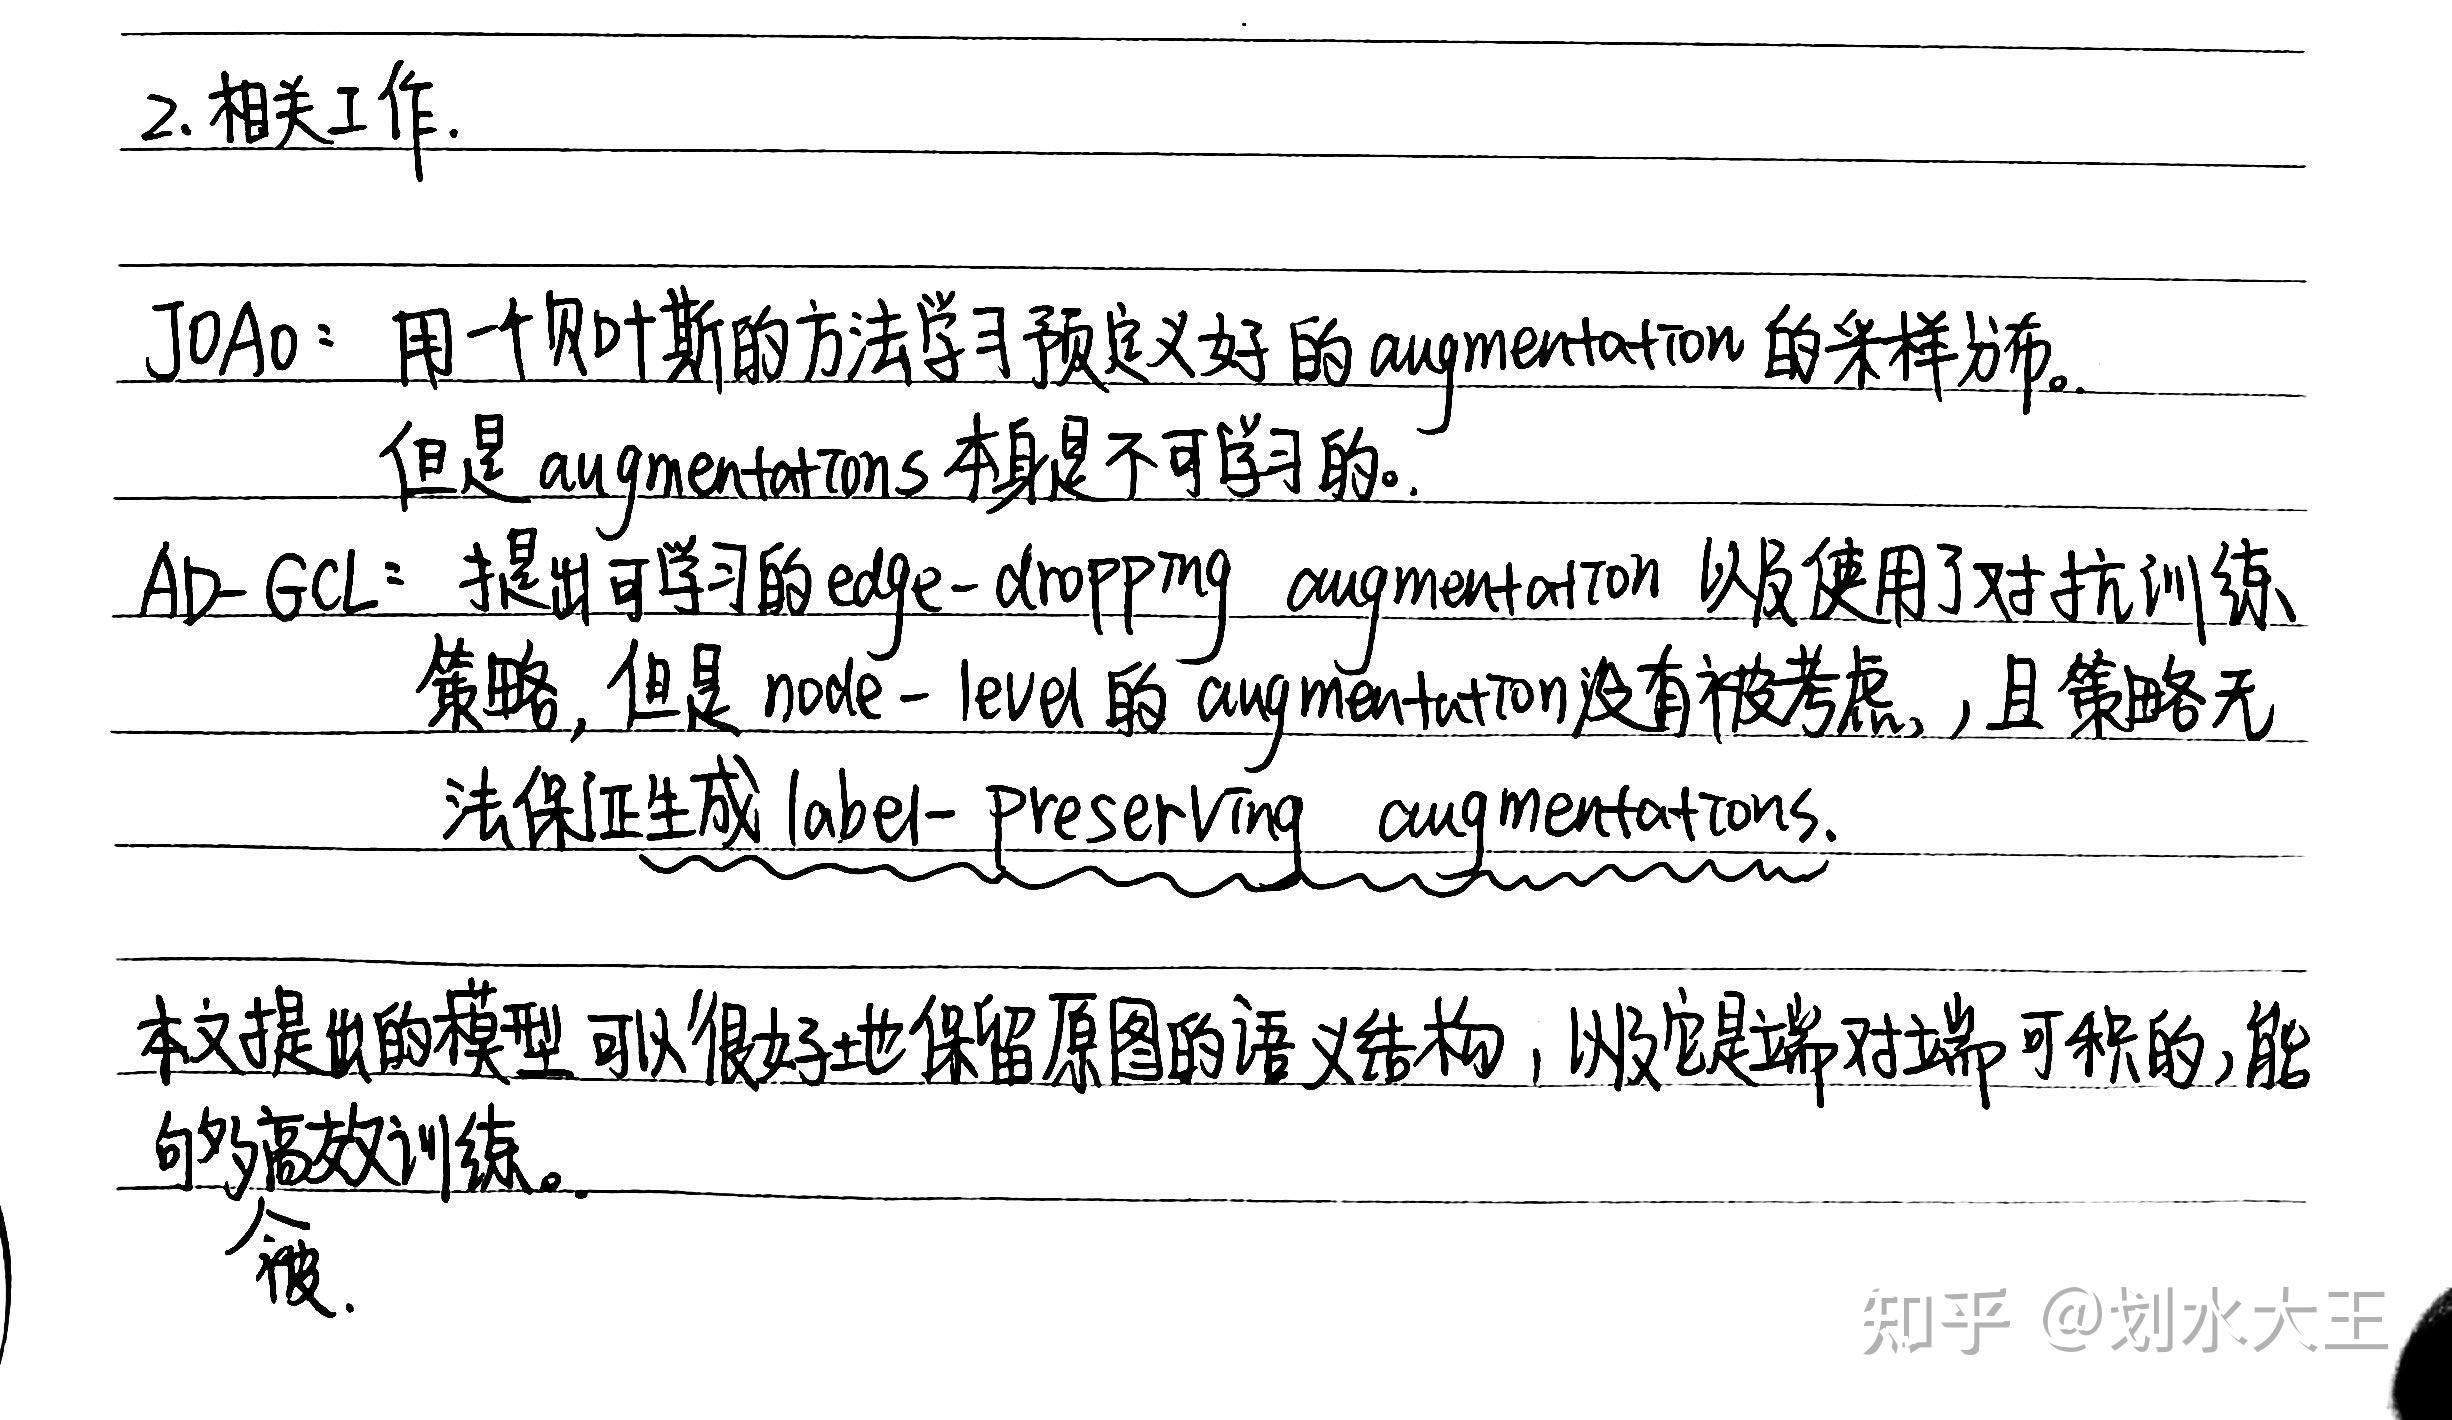 2. 相关工作.
JOAO: 用一个贝叶斯的方法学习预定义好的augmentation的采样分布。
但是augmentations本身是不可学习的。
AD-GCL: 提出可学习的edge-dropping augmentation 以及使用了对抗训练
策略,但是 node-level的augmentation没有被考虑,且策略无
法保证生成label-preserving augmentations.
本文提出的模型可以很好地保留原图的语义结构,以及它是端对端可积的,能
够高效训练。
被.
知乎 @划水大王